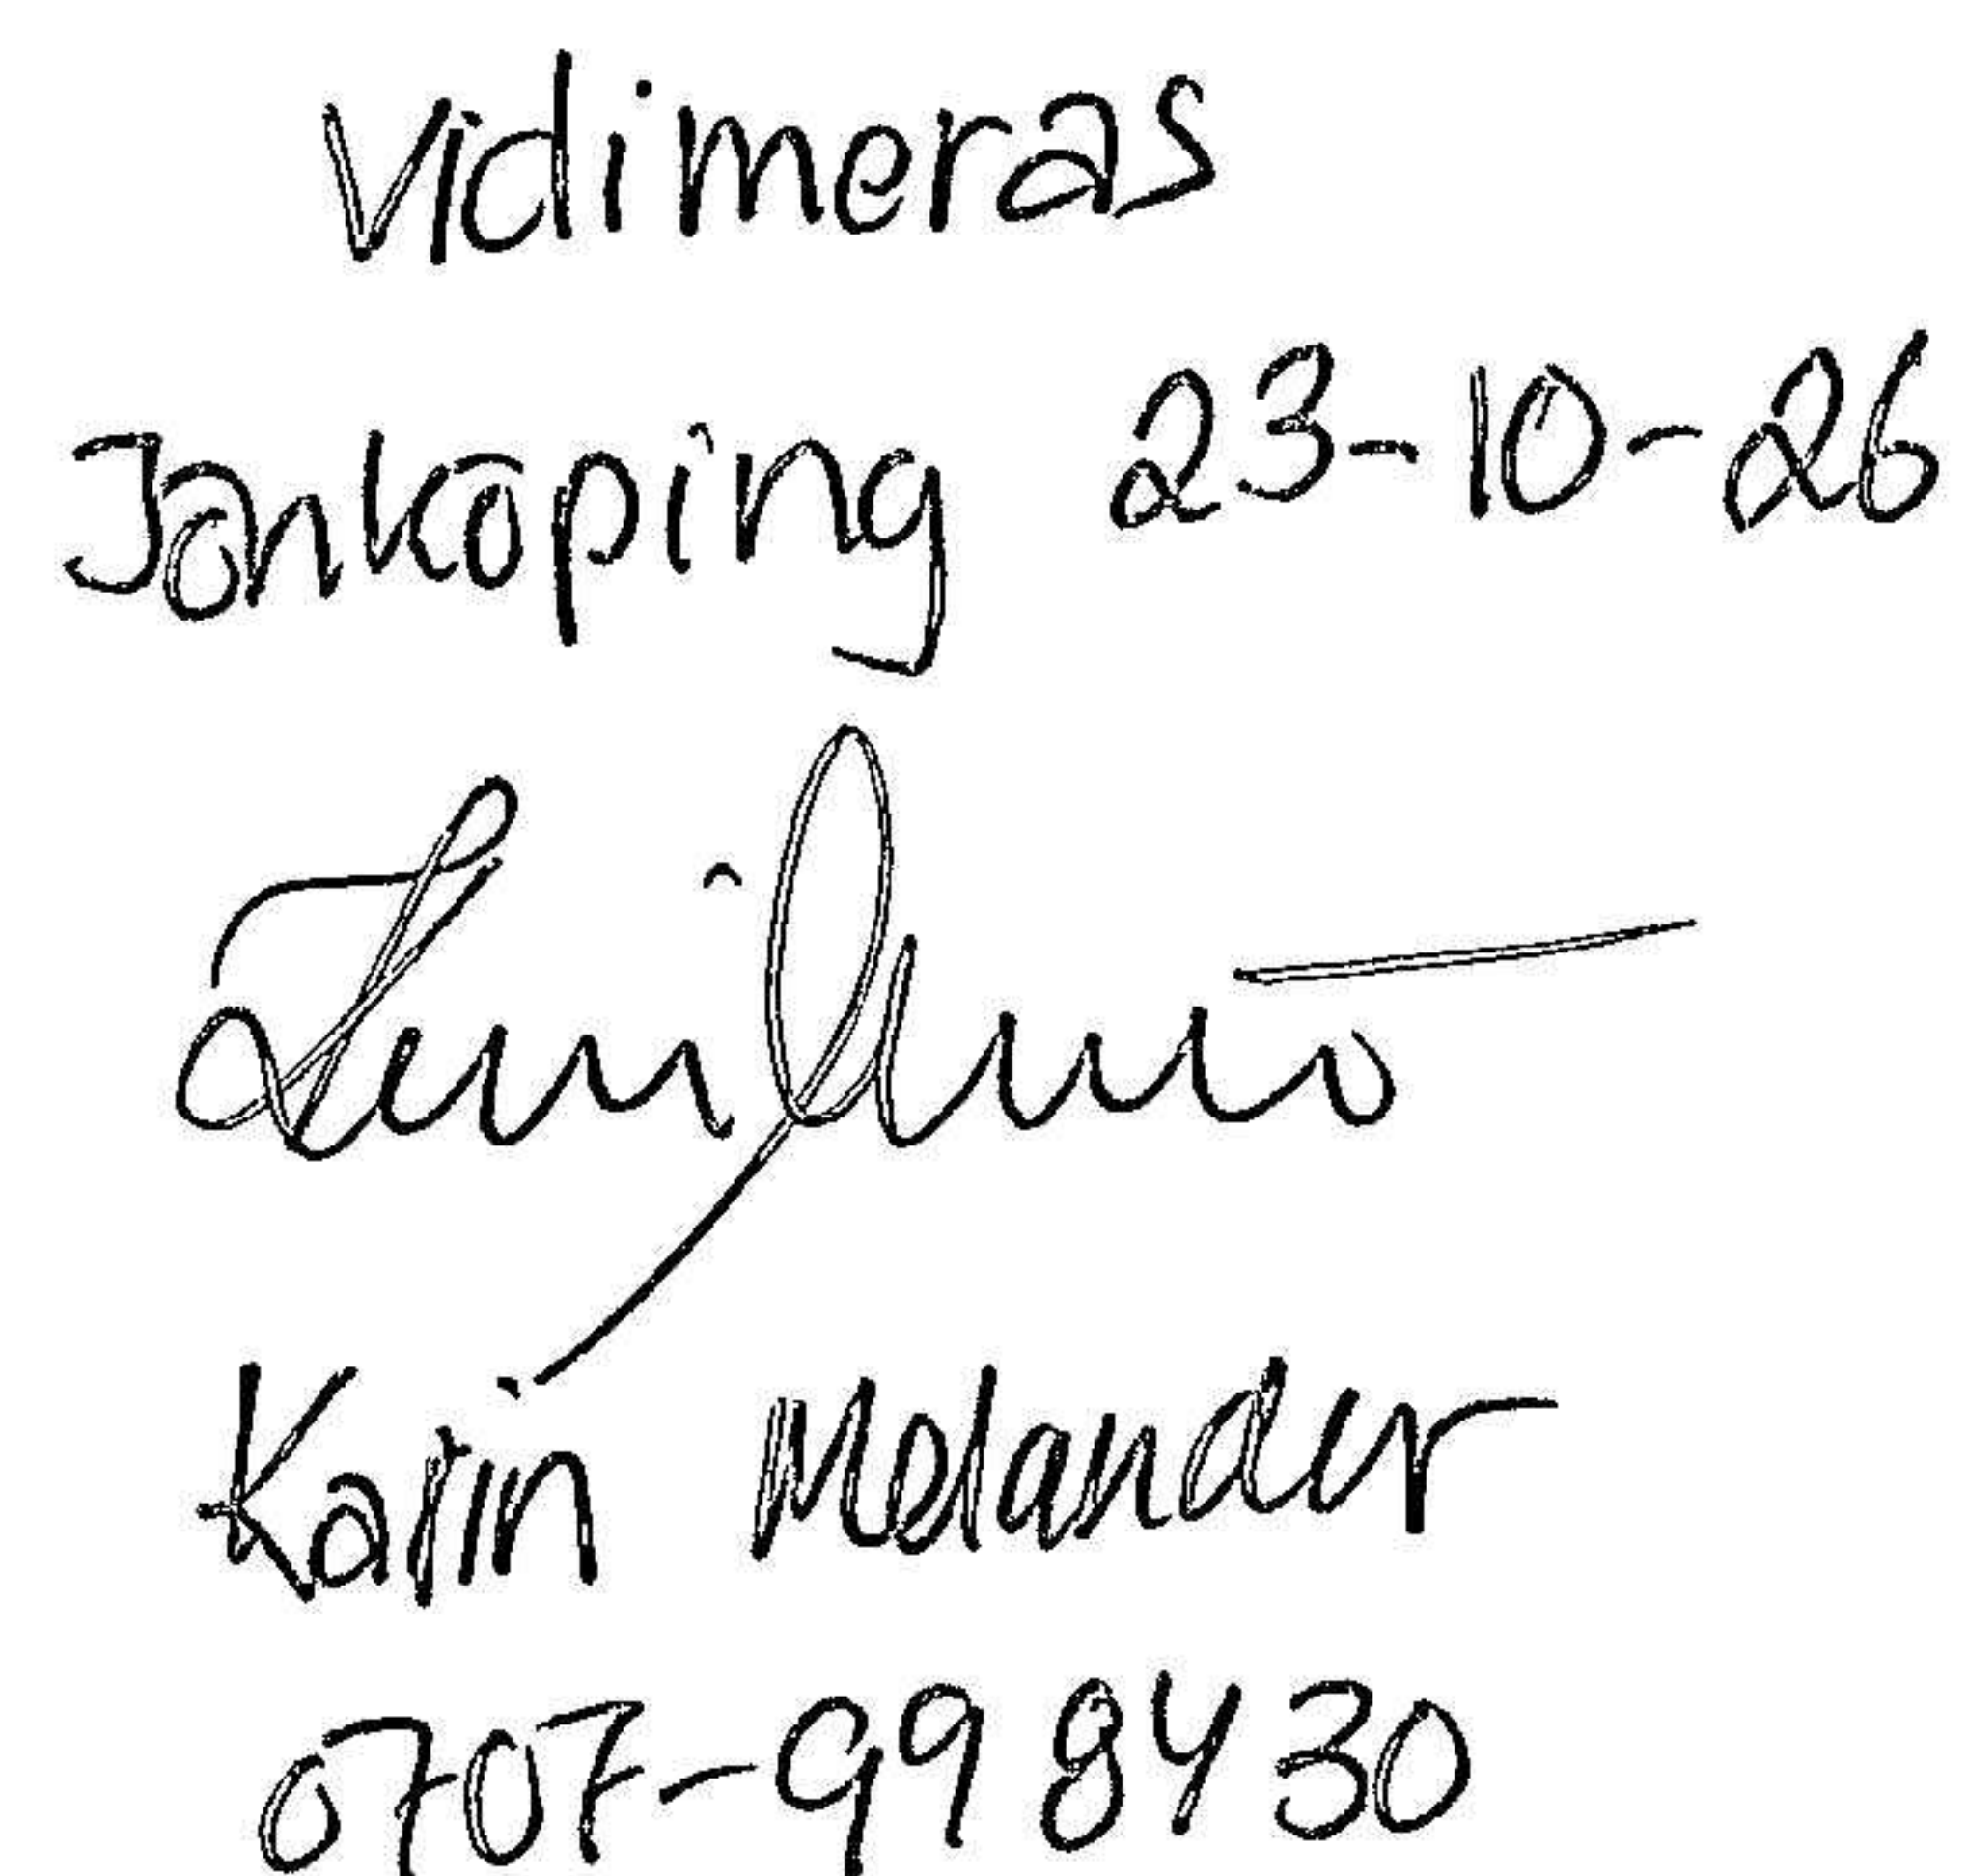 Vidimeras
Jönköping 23-10-26
Karin Melander
0707-99 84 30